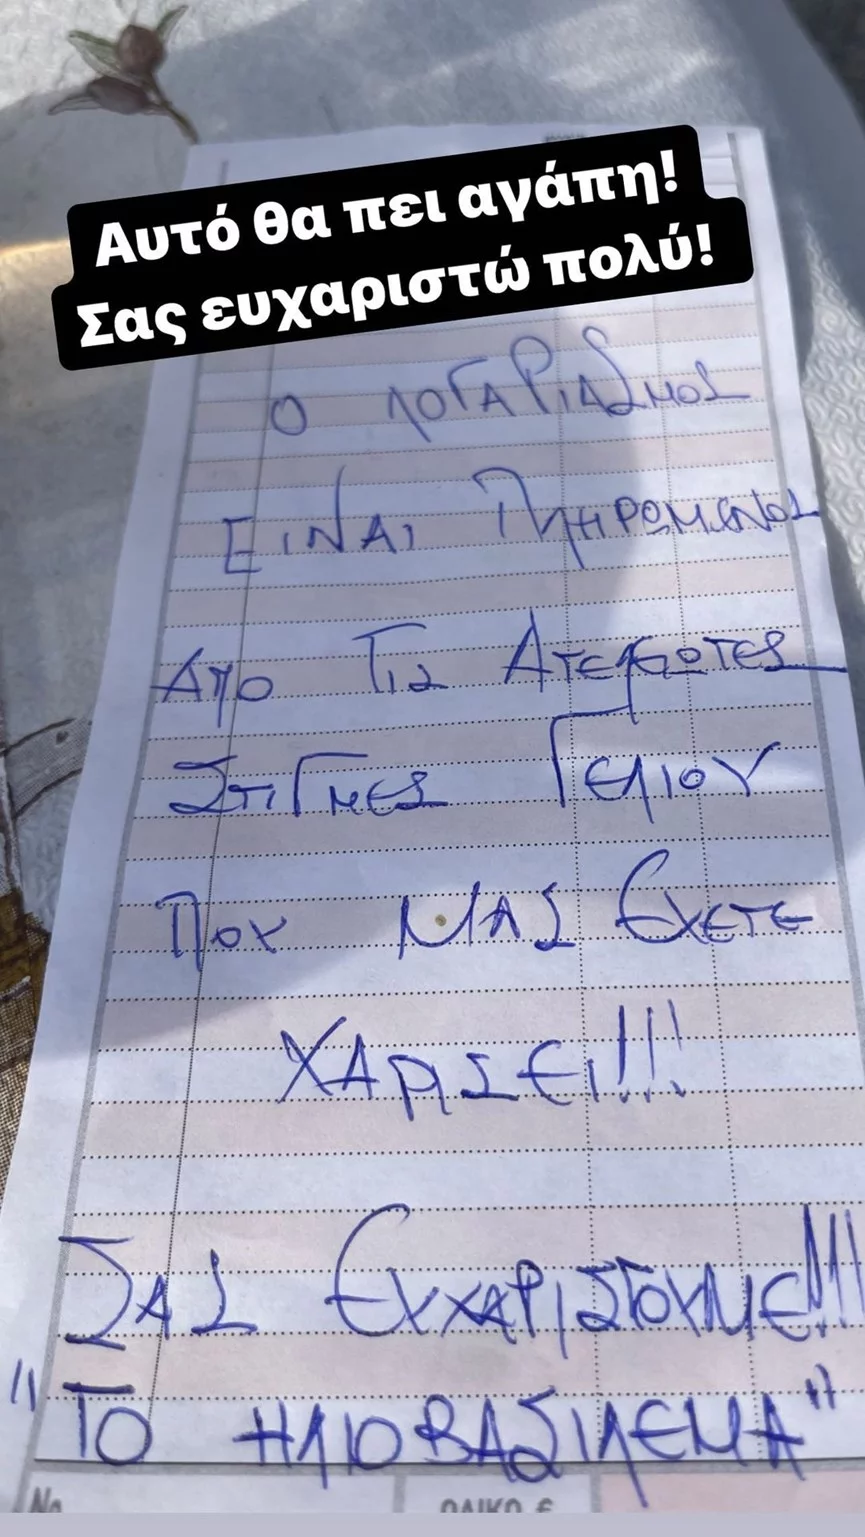 Αυτό θα πει αγάπη!
Σας ευχαριστώ πολύ!
Ο ΛΟΓΑΡΙΑΣΜΟΣ
ΕΙΝΑΙ ΠΛΗΡΩΜΕΝΟΣ
ΑΠΟ ΤΙΣ ΑΤΕΛΕΙΩΤΕΣ
ΣΤΙΓΜΕΣ ΓΕΛΙΟΥ
ΠΟΥ ΜΑΣ ΕΧΕΤΕ
ΧΑΡΙΣΕΙ!!!
ΣΑΣ ΕΥΧΑΡΙΣΤΟΥΜΕ!!!
"ΤΟ ΗΛΙΟΒΑΣΙΛΕΜΑ"